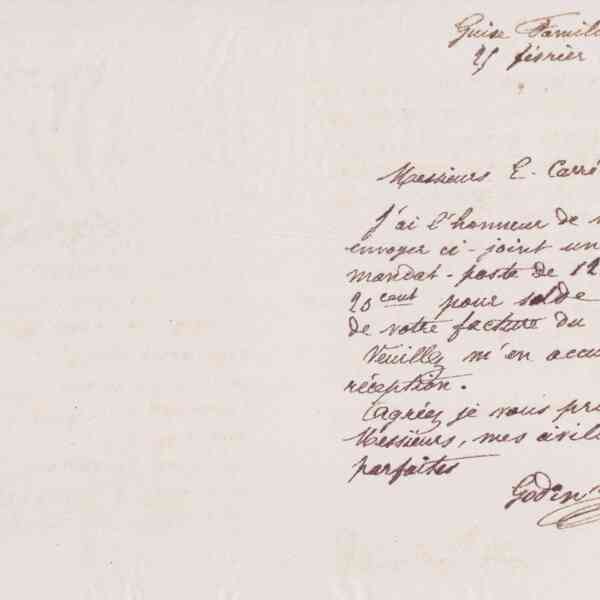 Guise Famili
25 février
Messieurs E. Carré
J'ai l'honneur de
envoyer ci-joint un
mandat-poste de 12
20 cent pour solde
de votre facture du
Veuillez m'en accu
réception.
Agréez je vous pri
Messieurs, mes civil
parfaites
Godin